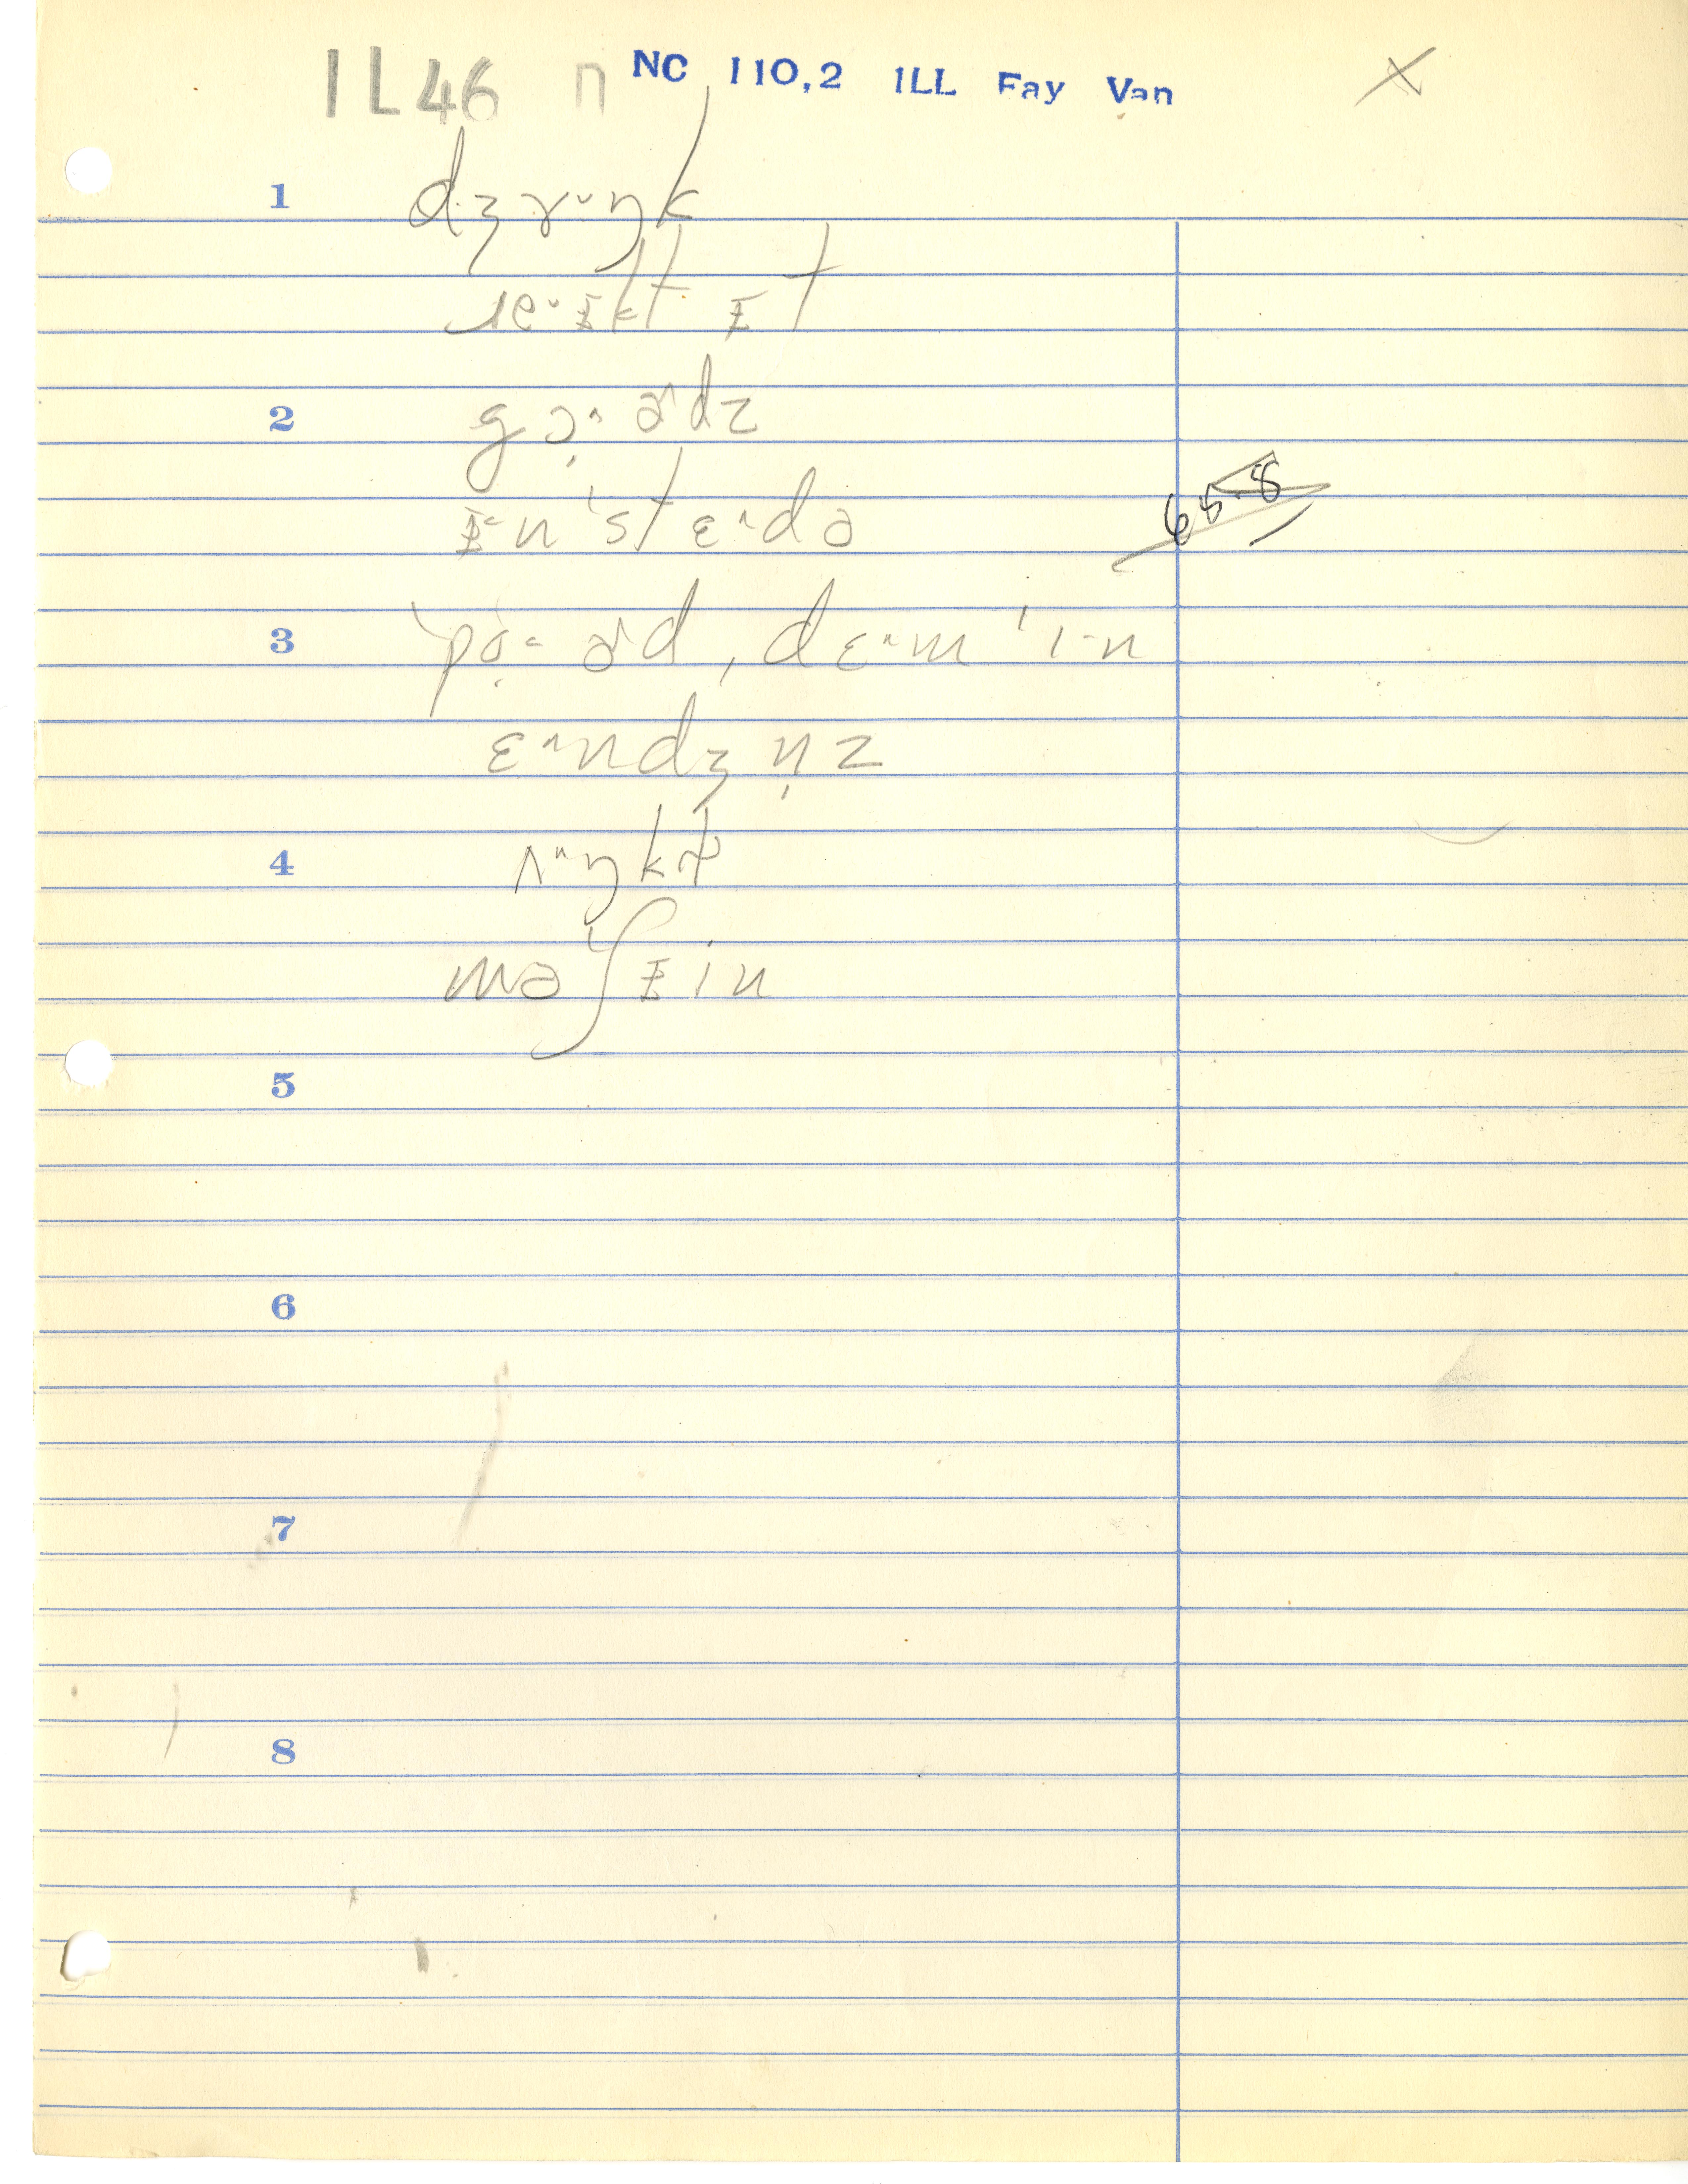 IL46 n NC 110,2 ILL Fay Van X
1 dʒɤ˘ŋk
ɹe˘ɪkt ɪt
2 gɔ̣˄ɚdz
ɪn ˈstɛ˄də
3 pọ ɚd, dɛ˄m ˈɪn
ɛ˄ndʒn̩z
4 ʌ˘ŋkḷ
məˈʃɪin
5
6
7
8